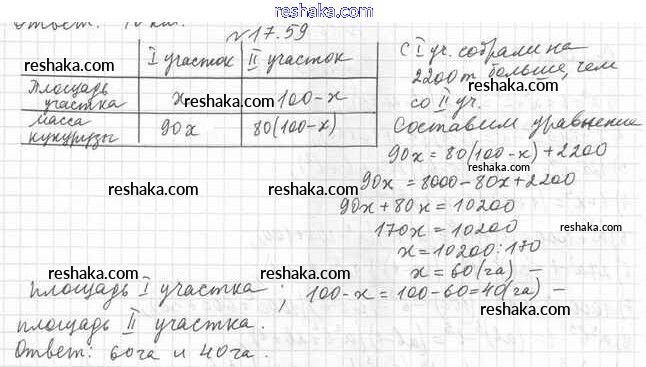 reshaka.com
Ответ: 10 км.
№17.59
I участок II участок
Площадь участка x 100-x
Масса кукурузы 90x 80(100-x)
С I уч. собрали на
2200т больше, чем
со II уч.
Составим уравнение
90x = 80(100-x)+2200
90x = 8000-80x+2200
90x+80x = 10200
170x = 10200
x = 10200:170
x = 60(га) —
площадь I участка ; 100-x = 100-60=40(га) —
площадь II участка.
Ответ: 60га и 40га.
reshaka.com
reshaka.com
reshaka.com
reshaka.com
reshaka.com
reshaka.com
reshaka.com
reshaka.com
reshaka.com
reshaka.com
reshaka.com
reshaka.com
reshaka.com